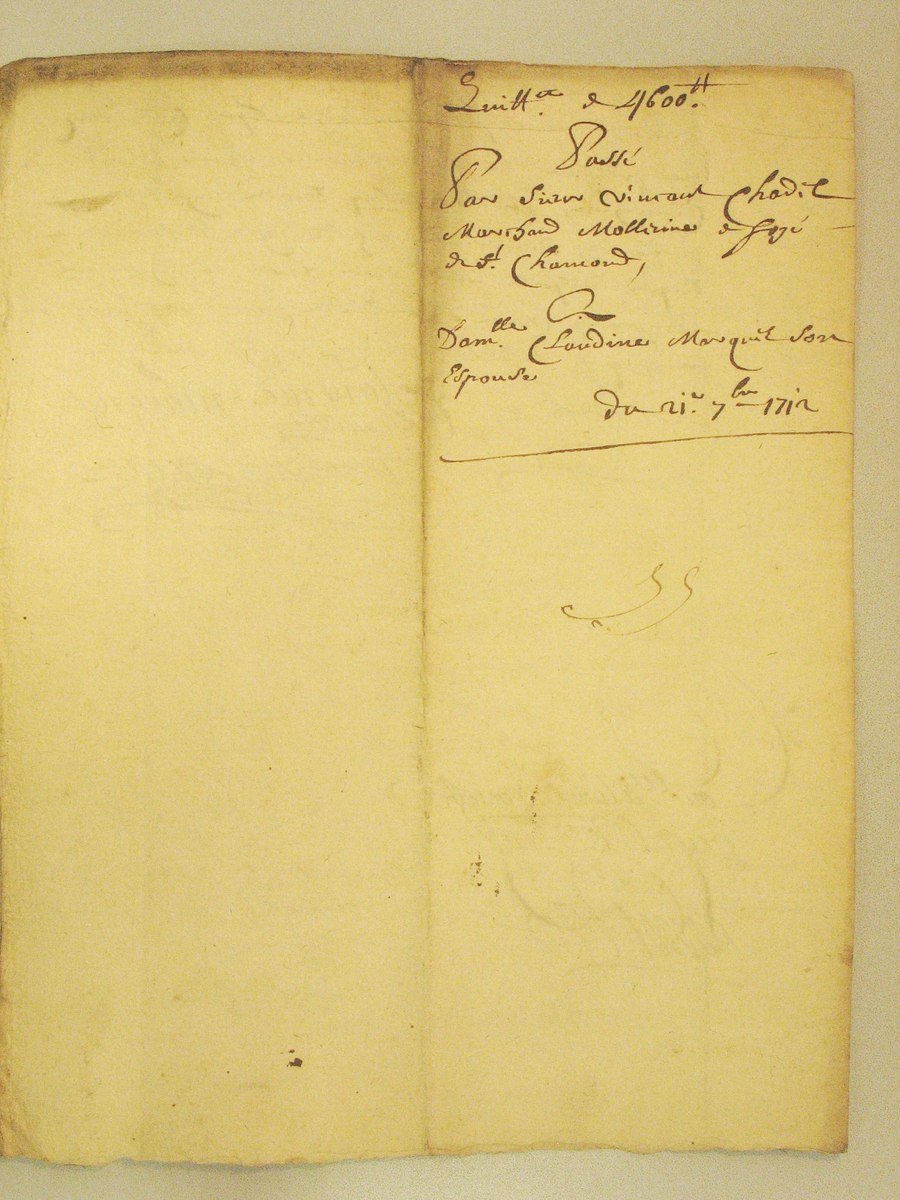 Quitt.ce de 4600.tt
Passé
Par Sieur Vincant Chadit
Marchand Mollinier de soye
de St. Chamond,
Et
Dam.lle Claudine Marquit Son
Espouse
Du 21.e 7bre 1712